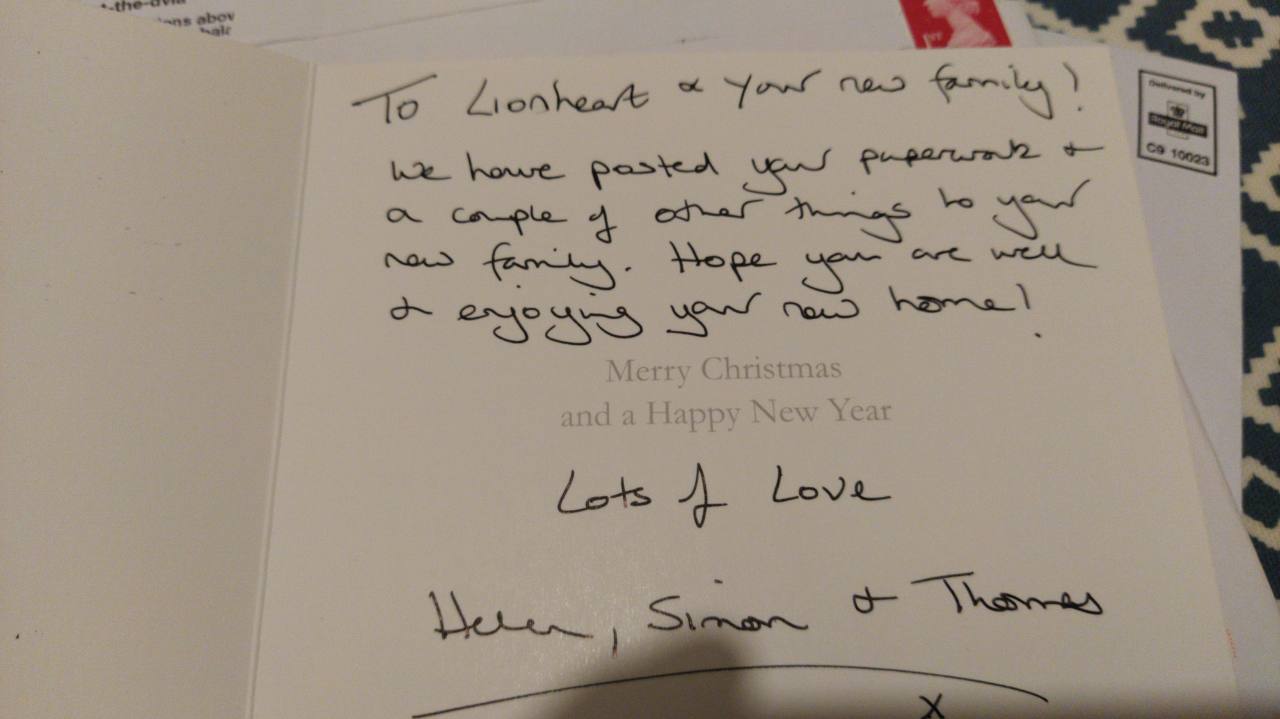 ns abov
To Lionheart & your new family!
We have posted your paperwork &
a couple of other things to your
new family. Hope you are well
& enjoying your new home!
Merry Christmas
and a Happy New Year
Lots of Love
Helen, Simon & Thomas
x
1ST
Delivered by
Royal Mail
C9 10023